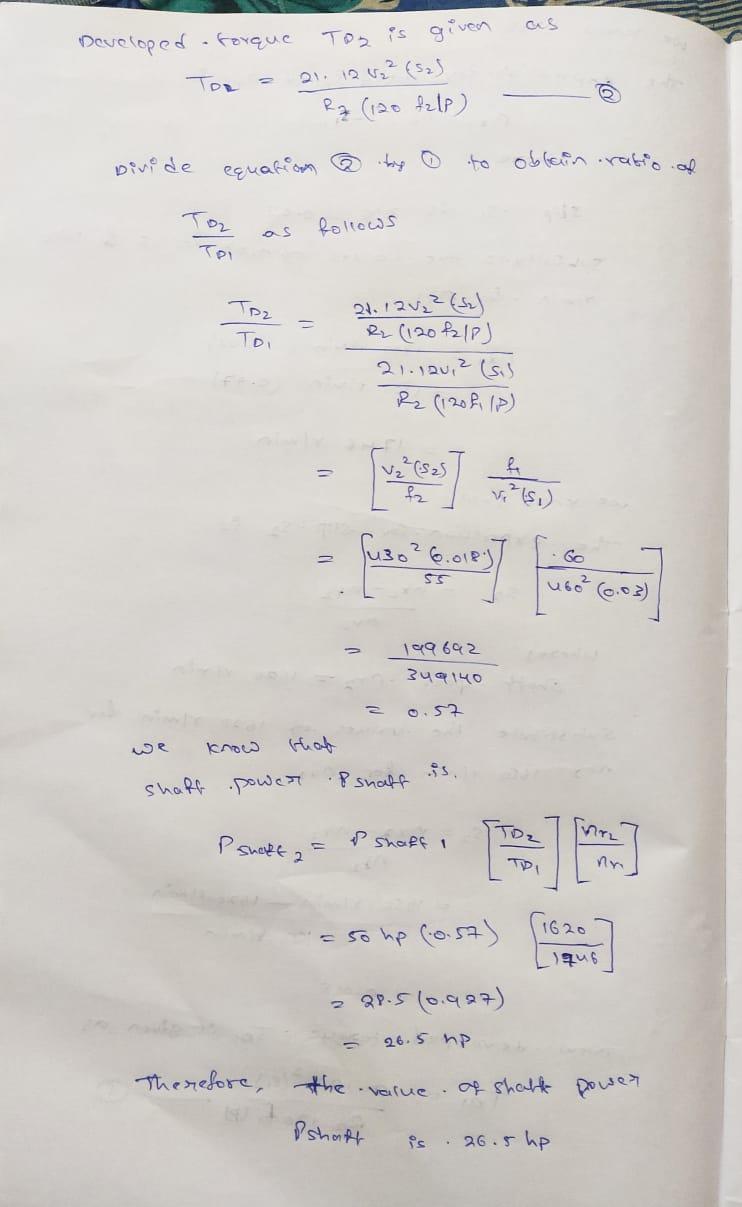 Developed . torque TD2 is given as
TD2 = 21.12 V2² (S2) / R2 (120 f2/P) ——— ②
Divide equation ② by ① to obtain ratio of
TD2 / TD1 as follows
TD2 / TD1 = 21.12V2² (S2) / R2 (120 f2/P) / 21.12V1² (S1) / R2 (120f1/P)
= [V2² (S2) / f2] f1 / V1² (S1)
= [430² (0.018) / 55] [60 / 460² (0.03)]
= 199692 / 349140
= 0.57
we know that
shaft power Pshaft is.
Pshaft2 = Pshaft1 [TD2 / TD1] [nr2 / nr1]
= 50 hp (0.57) [1620 / 1746]
= 28.5 (0.927)
= 26.5 hp
Therefore, the value of shaft power
Pshaft is . 26.5 hp